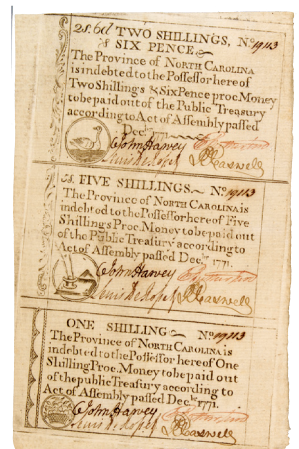 2s.6d TWO SHILLINGS, No 19113
& SIX PENCE
The Province of NORTH CAROLINA
is indebted to the Possessor hereof
Two Shillings & Six Pence proc. Money
to be paid out of the Public Treasury
according to Act of Assembly passed
Decr.
John Harvey
Lewis De Rosset R Caswell
5s FIVE SHILLINGS. No 19113
The Province of NORTH CAROLINA is
indebted to the Possessor hereof Five
Shillings Proc. Money to be paid out
of the Public Treasury according to
Act of Assembly passed Decr. 1771.
John Harvey
Lewis De Rosset R Caswell
ONE SHILLING No 19113
The Province of NORTH CAROLINA is
indebted to the Possessor hereof One
Shilling Proc. Money to be paid out
of the public Treasury according to
Act of Assembly passed Decr. 1771.
John Harvey
Lewis De Rosset R Caswell